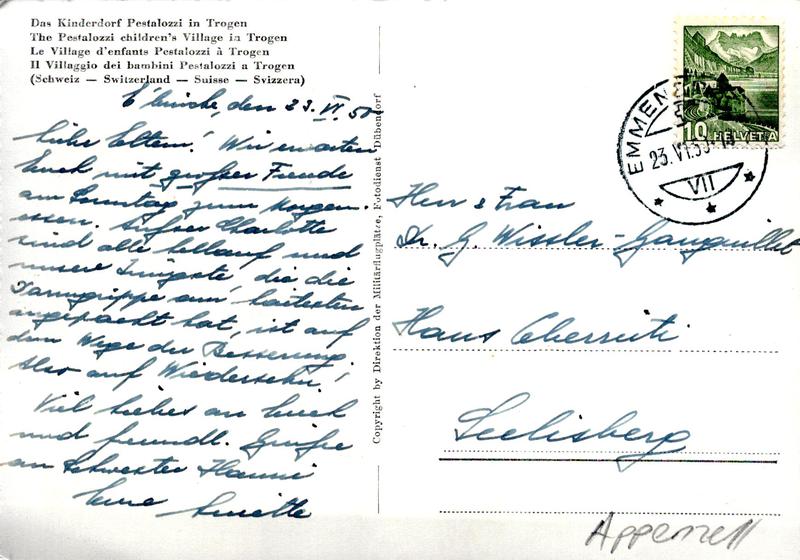 Das Kinderdorf Pestalozzi in Trogen
The Pestalozzi children's Village in Trogen
Le Village d'enfants Pestalozzi à Trogen
Il Villaggio dei bambini Pestalozzi a Trogen
(Schweiz — Switzerland — Suisse — Svizzera)
den 23. VI. 50
Liebe Eltern! Wir erwarten
Euch mit großer Freude
am Sonntag zum Morgen-
essen. Außer Charlotte
sind alle wohlauf und
unsere Jüngste, die die
Darmgrippe am
angepackt hat, ist auf
dem Wege der Besserung.
Also auf Wiedersehn!
Viel Liebes an Euch
und freundl. Grüße
an Schwester Hanni
Eure
Copyright by Direktion der Militärflugplätze, Fotodienst Dübendorf
EMMEN
23. VI. 50
VII
10 HELVETIA
Herr & Frau
Dr. G. Wissler-Ganguillet
Haus
Seelisberg
Appenzell